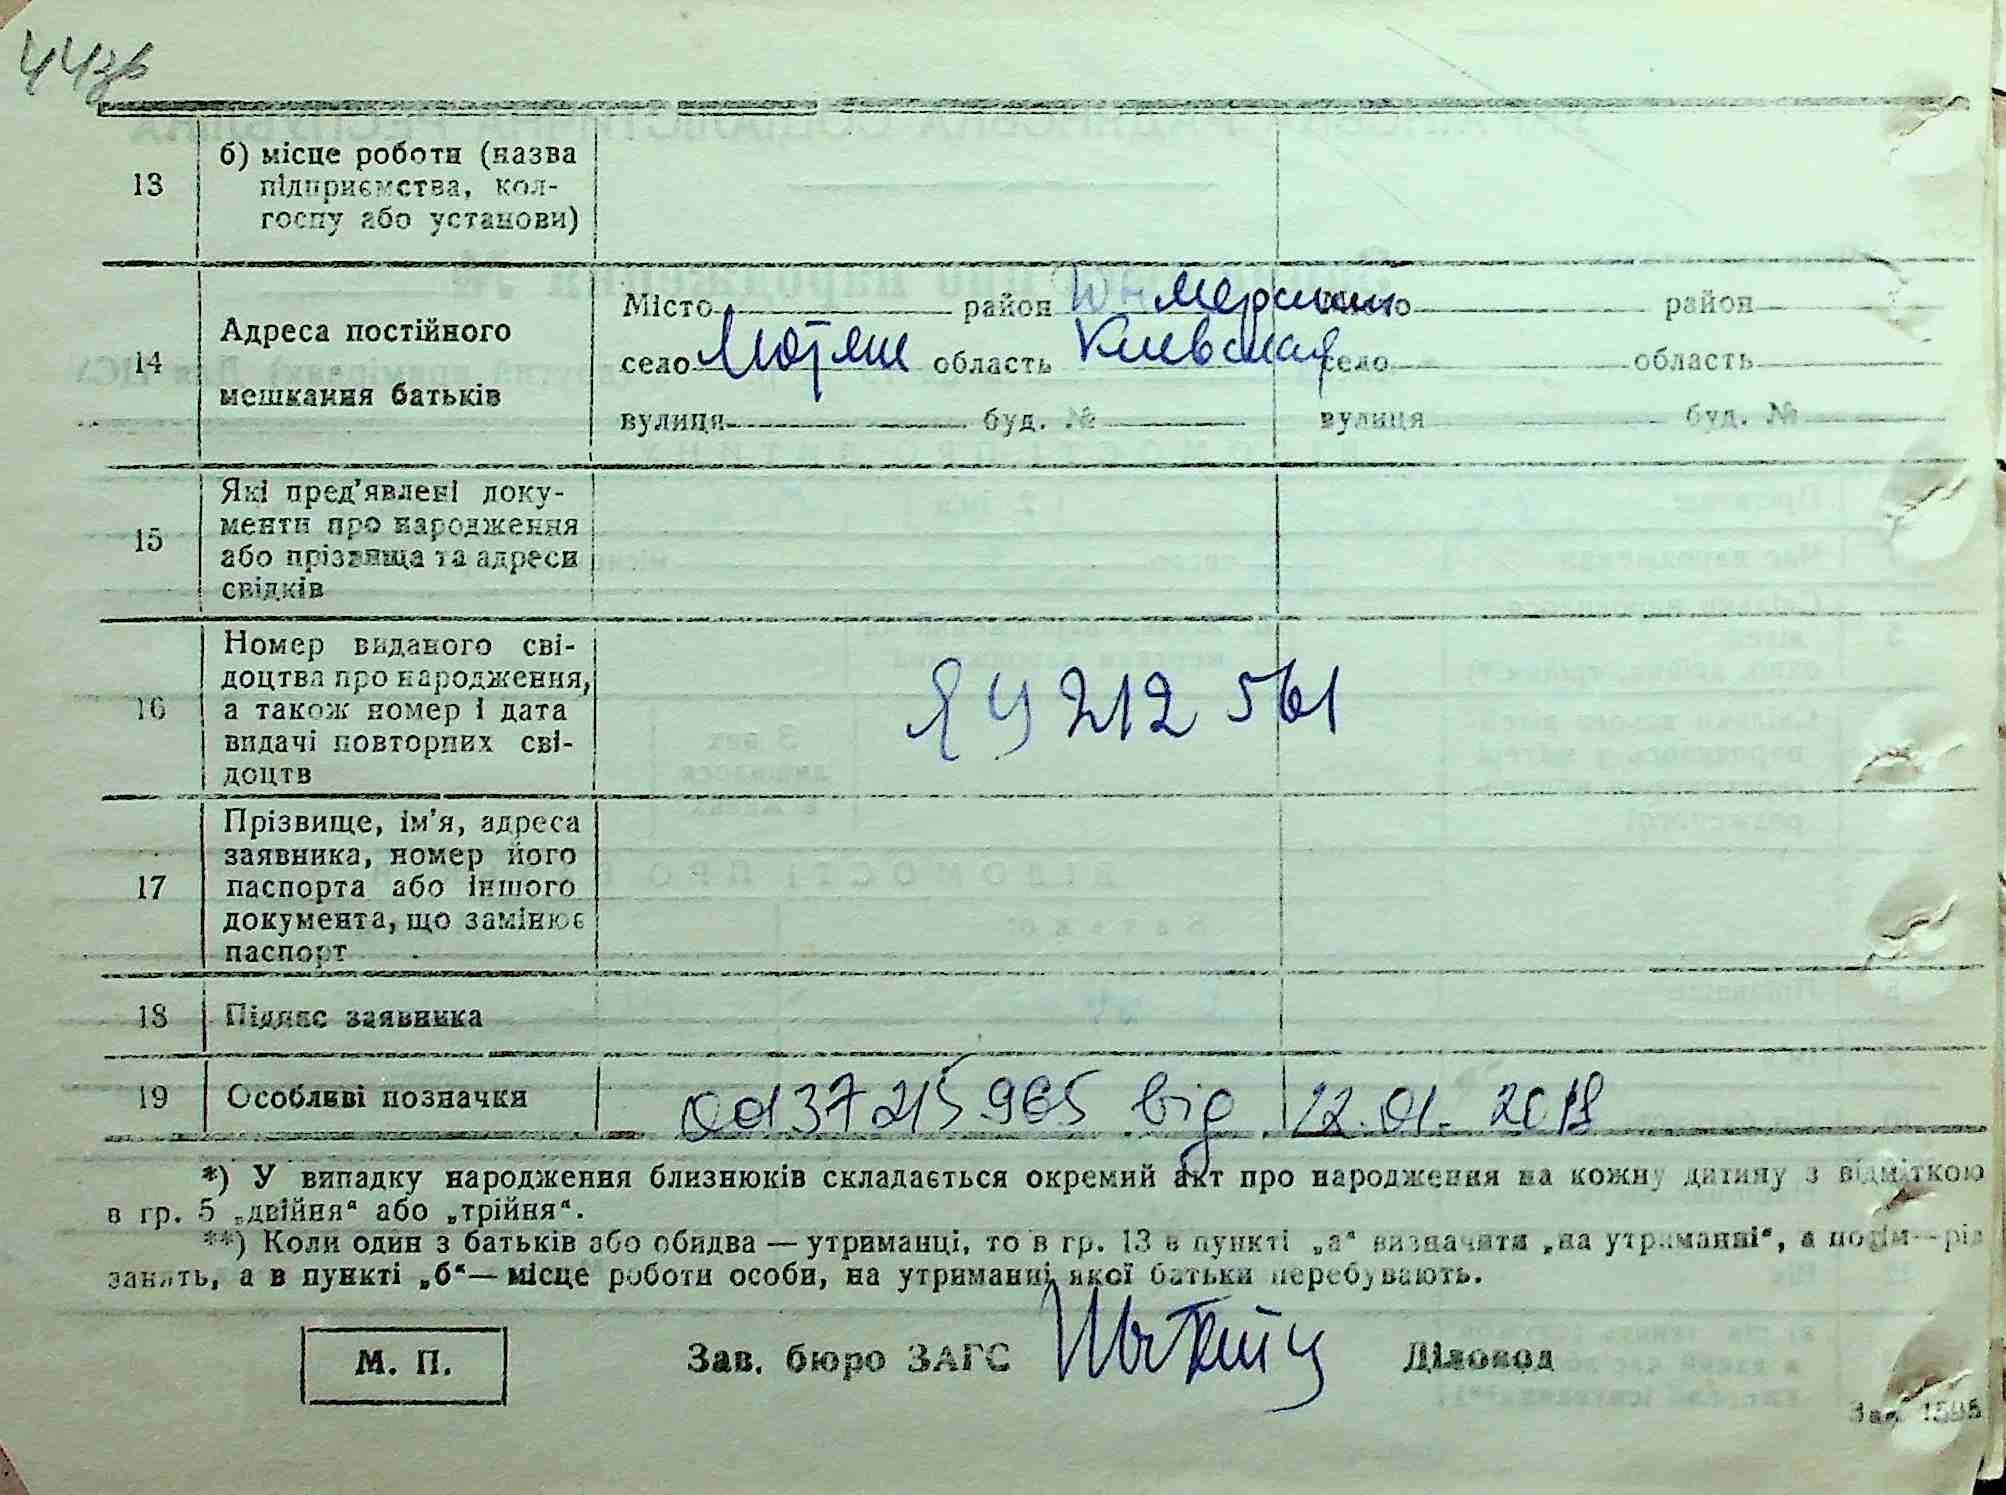 44зв
13 б) місце роботи (назва
підприємства, кол-
госпу або установи)
14 Адреса постійного
мешкання батьків
Місто район Дымерский Місто район
село Лютеж область Киевская село область
вулиця буд. № вулиця буд. №
15 Які пред'явлені доку-
менти про народження
або прізвища та адреси
свідків
16 Номер виданого сві-
доцтва про народження,
а також номер і дата
видачі повторних сві-
доцтв
ЯЧ 212 561
17 Прізвище, ім'я, адреса
заявника, номер його
паспорта або іншого
документа, що замінює
паспорт
18 Підпис заявника
19 Особливі позначки 37215965 від 12.01.2018
*) У випадку народження близнюків складається окремий акт про народження на кожну дитину з відміткою
в гр. 5 „двійня“ або „трійня“.
**) Коли один з батьків або обидва — утриманці, то в гр. 13 в пункті „а“ визначити „на утриманні“, а потім—рід
занять, а в пункті „б“— місце роботи особи, на утриманні якої батьки перебувають.
М. П. Зав. бюро ЗАГС Діловод
Зак. 1595